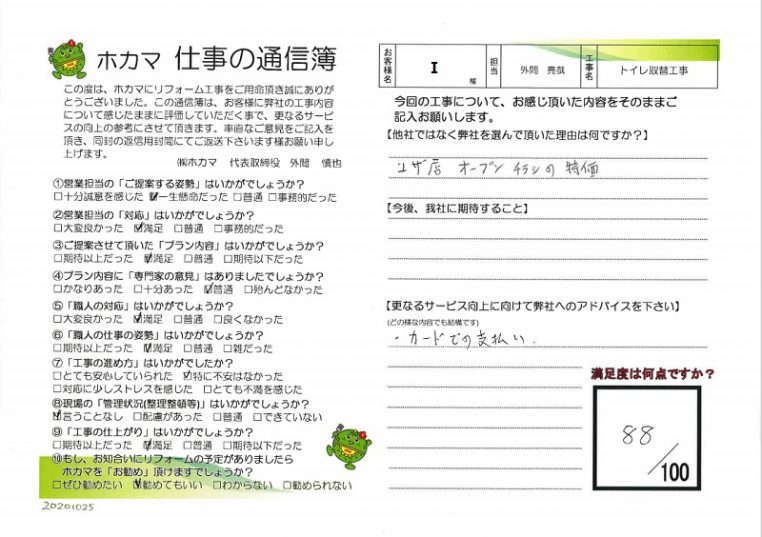 ホカマ 仕事の通信簿
この度は、ホカマにリフォーム工事をご用命頂き誠にありが
とうございました。この通信簿は、お客様に弊社の工事内容
について感じたままに評価していただく事で、更なるサービ
スの向上の参考にさせて頂きます。率直なご意見をご記入を
頂き、同封の返信用封筒にてご返送下さいます様お願い申し
上げます。
㈱ホカマ 代表取締役 外間 慎也
①営業担当の「ご提案する姿勢」はいかがでしょうか?
□十分誠意を感じた ☑一生懸命だった □普通 □事務的だった
②営業担当の「対応」はいかがでしょうか?
□大変良かった ☑満足 □普通 □事務的だった
③ご提案させて頂いた「プラン内容」はいかがでしょうか?
□期待以上だった ☑満足 □普通 □期待以下だった
④プラン内容に「専門家の意見」はありましたでしょうか?
□かなりあった □十分あった ☑普通 □殆んどなかった
⑤「職人の対応」はいかがでしょうか?
□大変良かった ☑満足 □普通 □良くなかった
⑥「職人の仕事の姿勢」はいかがでしょうか?
□期待以上だった ☑満足 □普通 □雑だった
⑦「工事の進め方」はいかがでしたか?
□とても安心していられた ☑特に不安はなかった
□対応に少しストレスを感じた □とても不満を感じた
⑧現場の「管理状況(整理整頓等)」はいかがでしょうか?
☑言うことなし □配慮があった □普通 □できていない
⑨「工事の仕上がり」はいかがでしょうか?
□期待以上だった ☑満足 □普通 □期待以下だった
⑩もし、お知合いにリフォームの予定がありましたら
ホカマを「お勧め」頂けますでしょうか?
□ぜひ勧めたい ☑勧めてもいい □わからない □勧められない
20201025
お客様名 I 様 担当 外間 亮哉 工事名 トイレ取替工事
今回の工事について、お感じ頂いた内容をそのままご
記入お願いします。
【他社ではなく弊社を選んで頂いた理由は何ですか?】
コザ店 オープン チラシの特価
【今後、我社に期待すること】
【更なるサービス向上に向けて弊社へのアドバイスを下さい】
(どの様な内容でも結構です)
・カードでの支払い.
満足度は何点ですか?
88
/100